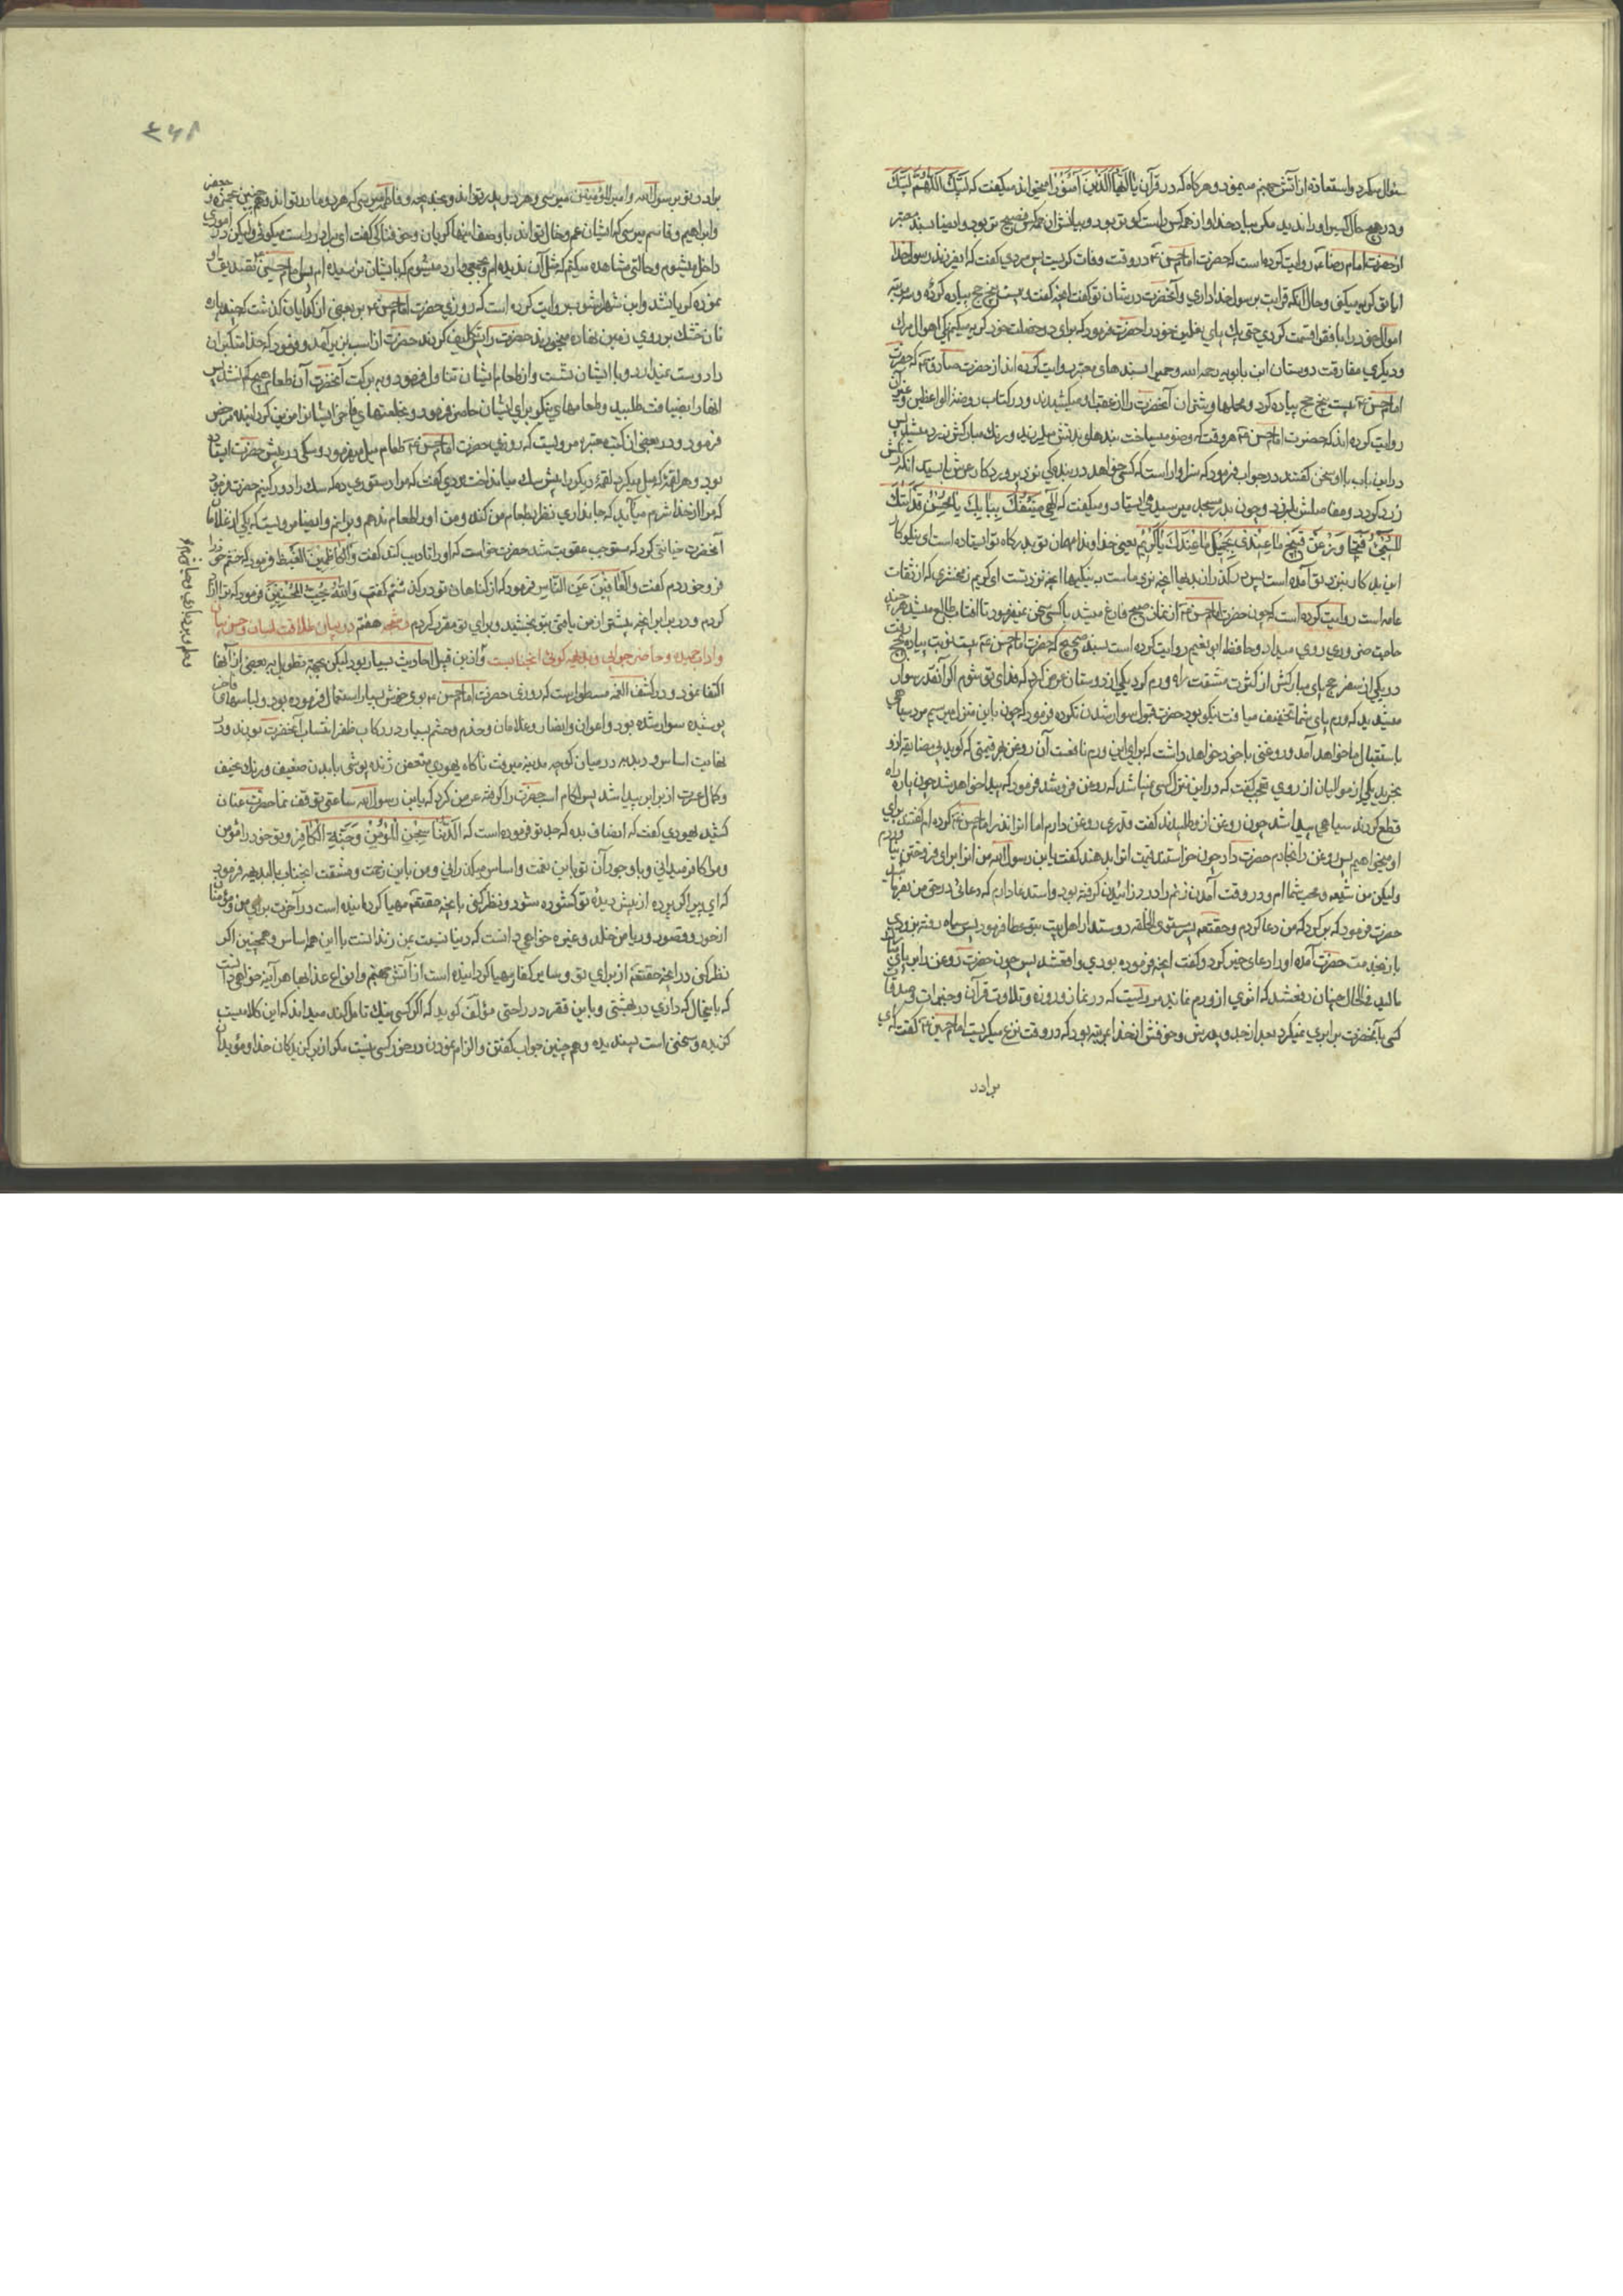 سئوال میکرد واستعاذه از آتش جهنم مینمود وهرکاه که در قرآن یا ایها الذین آمنوا میخواند میکفت که لبیک اللهم لبیک
ودر هیچ حال کسی اورا ندید مکر بیاد خدا واز همه کس راست کوی تر بود وبیانش از همه کس فصیح تر بود وایضا بسند معتبر
از حضرت امام رضا ع روایت کرده است که حضرت امام حسن ع در وقت وفات کریست پس مردی کفت که ایفرزند رسولخدا
ایا تو کریه میکنی وحال آنکه قرابت برسولخدا داری وآنحضرت در شان تو کفت انچه کفت و بیست پنج حج پیاده کرده و سه مرتبه
اموال خود را با فقرا قسمت کردی حتی یک پای نعلین خود را حضرت فرمود که برای دو خصلت خود کریه میکنم یکی اهوال مرک
ودیکری مفارقت دوستان ابن بابویه رحمه الله وحمیری بسندهای معتبر روایت کرده اند از حضرت صادق ع که حضرت
امام حسن ع بیست پنج حج پیاده کرد ومحملها وشتران آنحضرت را از عقب او میکشیدند ودر کتاب روضة الواعظین وغیر آن
روایت کرده اند که حضرت امام حسن ع هر وقت که وضو میساخت بندهای بدنش میلرزید ورنک مبارکش زرد میشد پس
در این باب با او سخن کفتند در جواب فرمود که سزاوار است که کسی خواهد در بندکی نزد پروردکار عرش بایستد انکه رنکش
زرد کردد ومفاصلش بلرزد وچون بدر مسجد میرسید می ایستاد ومیکفت که الهی ضیفک ببابک یا محسن قد اتاک
المسیئ فتجاوز عن قبیح ما عندی بجمیل ما عندک یا کریم یعنی خداوندا مهمان تو بدرکاه تو ایستاده است ای نیکوکار
این بد کار بنزد تو آمده است پس درکذر از بدیها انچه نزد ماست به نیکیها انچه نزد تست ای کریم زمخشری که از ثقات
عامه است روایت کرده است که چون حضرت امام حسن ع از نماز صبح فارغ میشد با کسی سخن نمیفرمود تا افتاب طالع میشد هر چند
حاجت ضروری روی میداد وحافظ ابو نعیم روایت کرده است بسند صحیح که حضرت امام حسن ع بیست نوبت پیاده بحج رفت
در یکی از سفر حج پای مبارکش از کثرت مشقت راه ورم کرد یکی از دوستان عرض کرد که فدای تو شوم اکر آنقدر سوار
میشدید که ورم پای شما تخفیف میافت نیکو بود حضرت قبول سوار شدن نکرده فرمود که چون باین منزل میرسیم مرد سیاهی
باستقبال ما خواهد آمد وروغنی با خود خواهد داشت که برای این ورم نافعست آن روغن بهر قیمتی که کوید بی مضایقه ازو
بخرید یکی از موالیان از روی تعجب کفت که در این منزل کسی نمیباشد که روغن فروشد فرمود که پیدا خواهد شد چون پاره راه
قطع کردند سیاهی پیدا شد چون روغن ازو طلبیدند کفت قدری روغن دارم اما انرا نذر امام حسن ع کرده ام کفتند برای
او میخواهیم پس روغن را بخادم حضرت داد چون خواستند قیمت انرا بدهند کفت یا بن رسول الله من انرا برای فروختن نیاوردم
ولیکن من شیعه ومحب شما ام ودر وقت آمدن زنم را درد زائیدن کرفته بود واستدعا دارم که دعائی در حق من بفرمائید
حضرت فرمود که برکرد که من دعا کردم وحقتعالی پسر مستوی الخلقه دوستدار اهل بیت بتو عطا فرمود پس سیاه رفته بزودی
باز بخدمت حضرت آمده اورا دعای خیر کرد وکفت انچه فرموده بودی واقعشد پس چون حضرت روغن را بر پای مبارک
مالید فی الحال چنان رفعشد که اثری از ورم نماند مرویست که در نماز وروزه وتلاوت قرآن وخیرات وصدقات
کسی بآنحضرت برابری نمیکرد بعد از جد وپدرش وخوفش از خدا بمرتبه بود که در وقت نزع میکریست امام حسین ع کفت که ای
برادر
۳۶۸
برادر تو برسول الله وامیر المؤمنین میرسی وهر دو پدر تو اند وبخدیجه وفاطمه میرسی که هر دو مادر تو اند وهمچنین بحمزه و جعفر
وابراهیم وقاسم میرسی که ایشان عم وخال تو اند با وصف اینها کریان وخوفناکی کفت ای برادر راست میکوئی ولیکن در اموری
داخل میشوم وحالتی مشاهده میکنم که مثل آن ندیده ام وبجمعی وارد میشوم که با یشان نرسیده ام پس امام حسین ع تصدیق او
نموده کریان شد وابن شهراشوب روایت کرده است که روزی حضرت امام حسن ع بر بعضی از کدایان کذشت که چند پاره
نان خشک بر روی زمین نهاده میخوردند حضرت را تکلیف کردند حضرت از اسب بزیر آمد وفرمود که خدا متکبران
را دوست نمیدارد وبا ایشان نشست واز طعام ایشان تناول فرمود وببرکت آنحضرت آن طعام هیچ کم نشد پس
انها را بضیافت طلبید وطعامهای نیکو برای ایشان حاضر فرمود وبخلعتهای فاخر ایشانرا مزین کردانیده مرخص
فرمود ودر بعضی از کتب معتبره مرویست که روزی حضرت امام حسن ع طعام میل میفرمود وسکی در پیش حضرت ایستاده
بود وهر لقمه را که میل میکرد لقمه دیکر را پیش سک میانداخت مردی کفت که مرا دستوری ده که سک را دور کنیم حضرت فرمود
که مرا از خدا شرم میآید که جانداری نظر بطعام من کند ومن اورا طعام ندهم وبرانم وایضا مرویست که یکی از غلامان
آنحضرت خیانتی کرد که مستوجب عقوبت شد حضرت خواست که اورا تادیب کند کفت والکاظمین الغیظ فرمود که خشم خود را
فرو خوردم کفت والعافین عن الناس فرمود که از کناهان تو درکذشتم کفت والله یحب المحسنین فرمود که ترا آزاد
کردم ودر برابر انچه پیشتر از من یافتی بتو بخشید وبرای تو مقرر کردم رشحه هفتم در بیان طلاقت لسان وحسن بیان
واداب حمیده وحاضر جوابی وبدیهه کوئی انجنابست واز این قبیل احادیث بسیار بود لیکن بجهة تطویل به بعضی از آنها
اکتفا نمود ودر کشف الغمه مسطور است که روزی حضرت امام حسن ع بوی خوش بسیار استعمال فرموده بود ولباسهای فاخر
پوشیده سوار شده بود واعوان وانصار وغلامان وخدم وحشم بسیار در رکاب ظفر انتساب آنحضرت بودند ودر
نهایت اساس ودبدبه در میان کوچه مدینه میرفت ناکاه یهودی متعفن ژنده پوشی با بدن ضعیف ورنک نحیف
وکمال عسرت از برابر پیدا شد پس لجام اسب حضرت را کرفته عرض کرد که یا بن رسول الله ساعتی توقف نما حضرت عنان
کشید یهودی کفت که انصاف بده که جد تو فرموده است که الدنیا سجن المؤمن وجنة الکافر وتو خود را مؤمن
ومرا کافر میدانی وبا وجود آن تو باین نعمت واساس میکذرانی ومن باین زحمت ومشقت انجناب بالبدیهه فرمود
که ای پیر اکر پرده از پیش دیده تو کشوده شود ونظر کنی بانچه حقتعالی مهیا کردانیده است در آخرت برای من ومؤمنان
از حور وقصور وریاض خلد وغیره خواهی دانست که دنیا نسبت بمن زندانست با این همه اساس وهمچنین اکر
نظر کنی در انچه حقتعالی از برای تو وسایر کفار مهیا کردانیده است از آتش جهنم وانواع عذابها هر آینه خواهی دانست
که با اینحال که داری در بهشتی وباین فقر در راحتی مؤلف کوید که اکر کسی نیک تامل کند میداند که این کلامیست
کزیده وسخنی است پسندیده وهمچنین جواب کفتن والزام نمودن در خور کسی نیست مکر از برکزیدکان خدا ومؤیدان